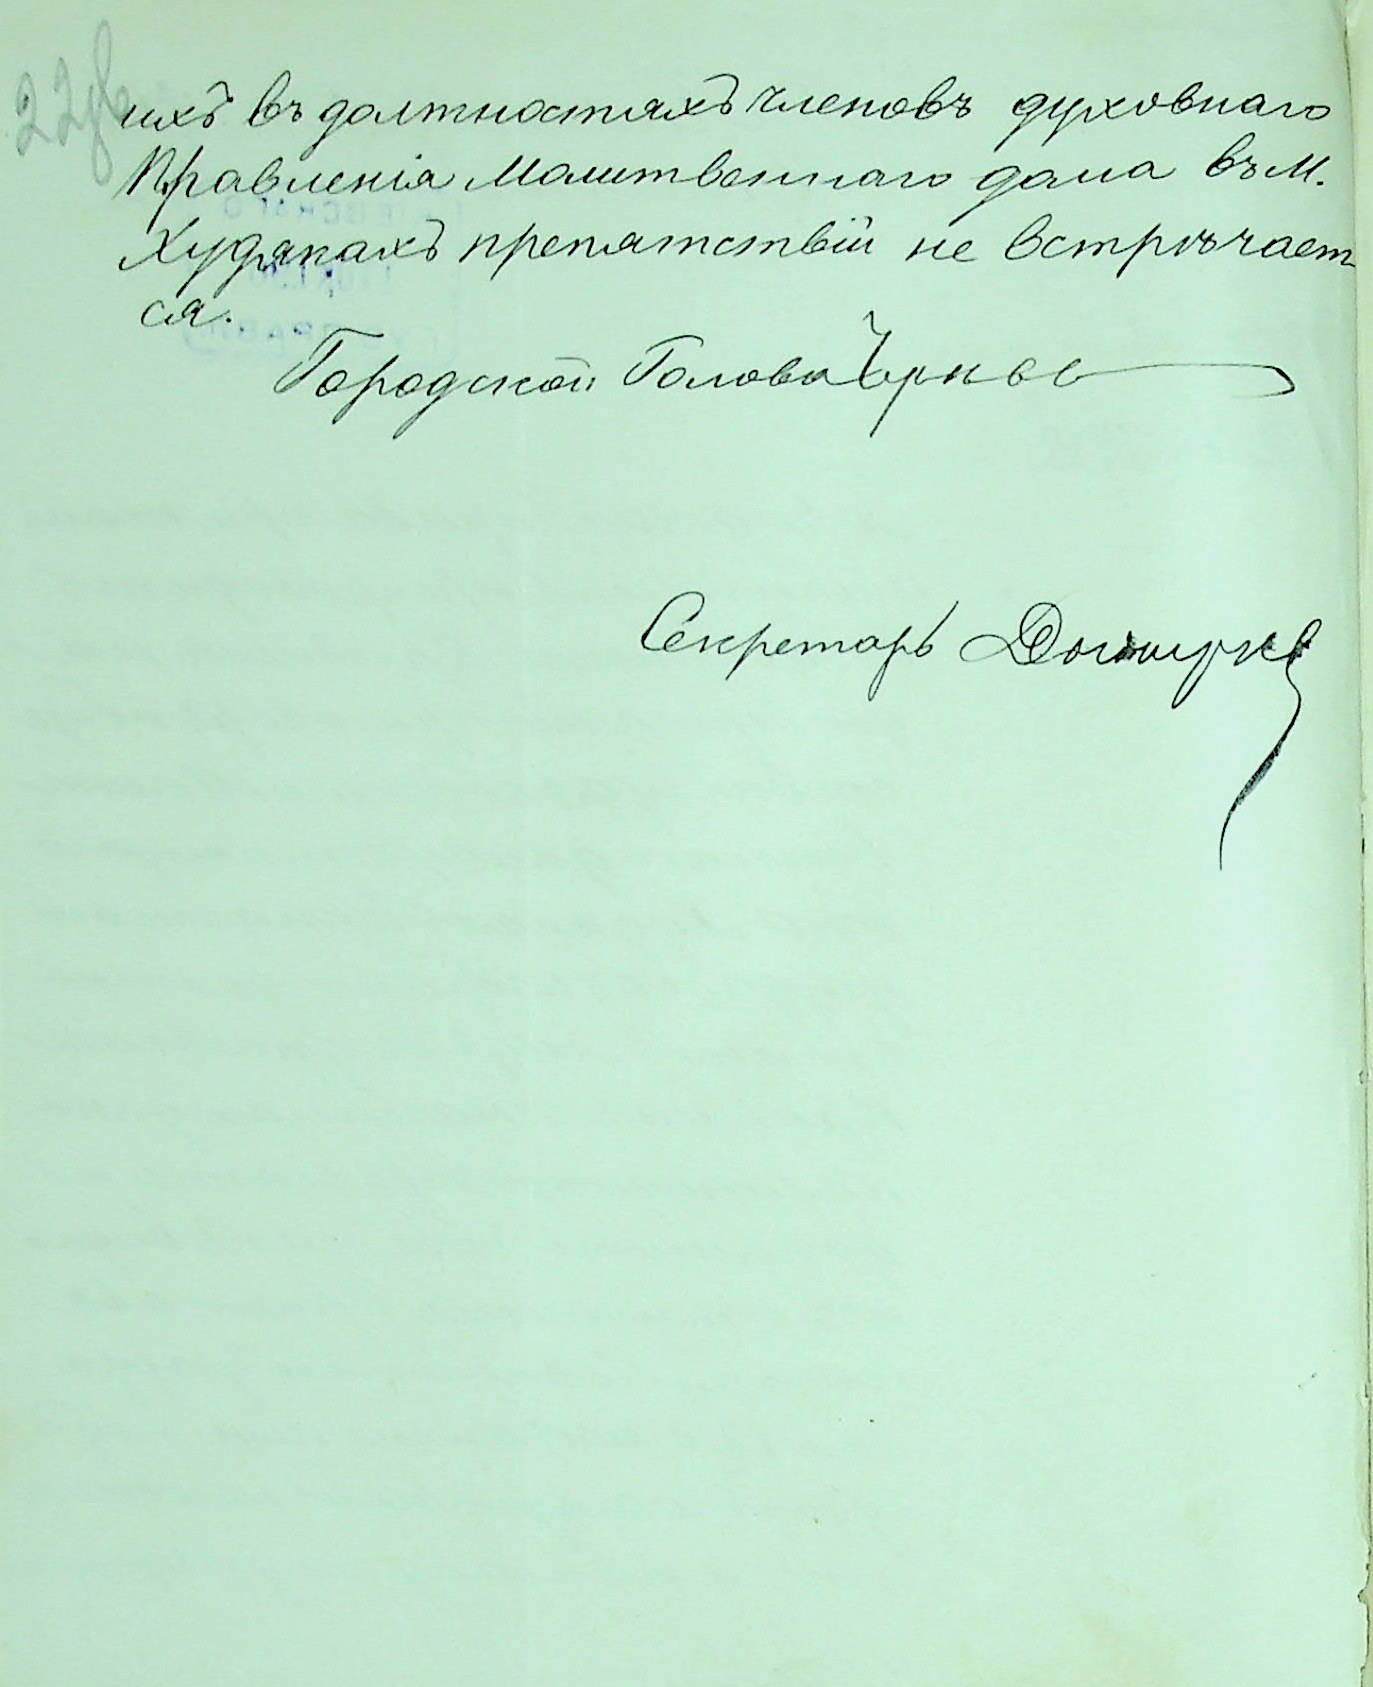 ихъ въ должностяхъ членовъ духовнаго
Правленія Молитвеннаго дома въ М.
Худякахъ препятствій не встрѣчает-
ся.
Городской Голова
Секретарь